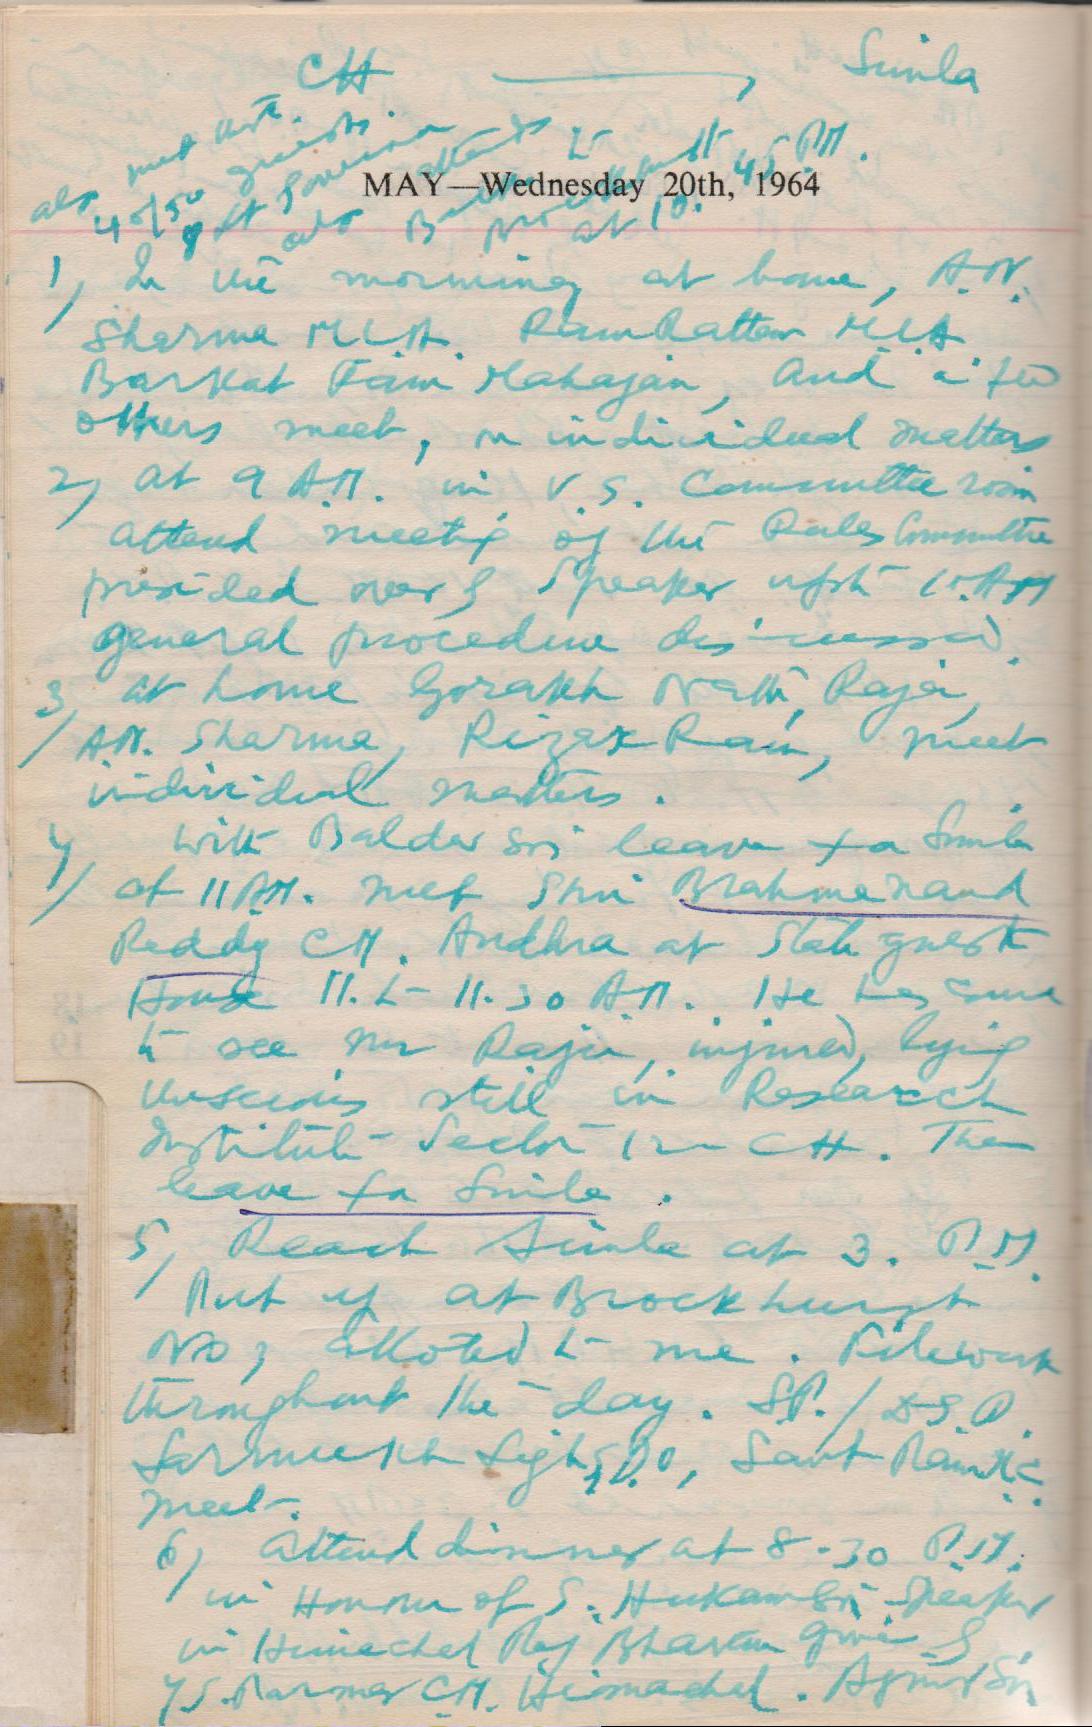 CH — , Simla
MAY—Wednesday 20th, 1964
also met
40/50 guests
at
at 10.
45 PM.
1, In the morning at home, A.N.
Sharma MLA. Ram Rattan MLA
Barkat Ram Mahajan, and a few
others meet, on individual matters
2, at 9 A.M. in V.S. Committee room
attend meeting of the Rules Committee
presided over by Speaker upto 10. AM
general procedure discussed.
3, at home Gorakh Nath, Raja,
A.N. Sharma, Rizak Ram, meet
individual matters.
4, with Baldev leave for Simla
at 11 AM. met Shri Brahmanand
Reddy CM. Andhra at State guest
House 11. to 11.30 A.M. He has come
to see Mr Raju, injured, lying
still in Research
Institute Sector 12 CH. Then
leave for Simla.
5, Reach Simla at 3. P.M.
Put up at Brockhurst
No 3 allotted to me. Filework
throughout the day. SP. / D.S.P.
Sant Ram
meet.
6, Attend dinner at 8-30 P.M.
in Honour of S. Hukam Speaker
in Himachal Raj Bhavan given by
Y S. Parmar CM. Himachal.